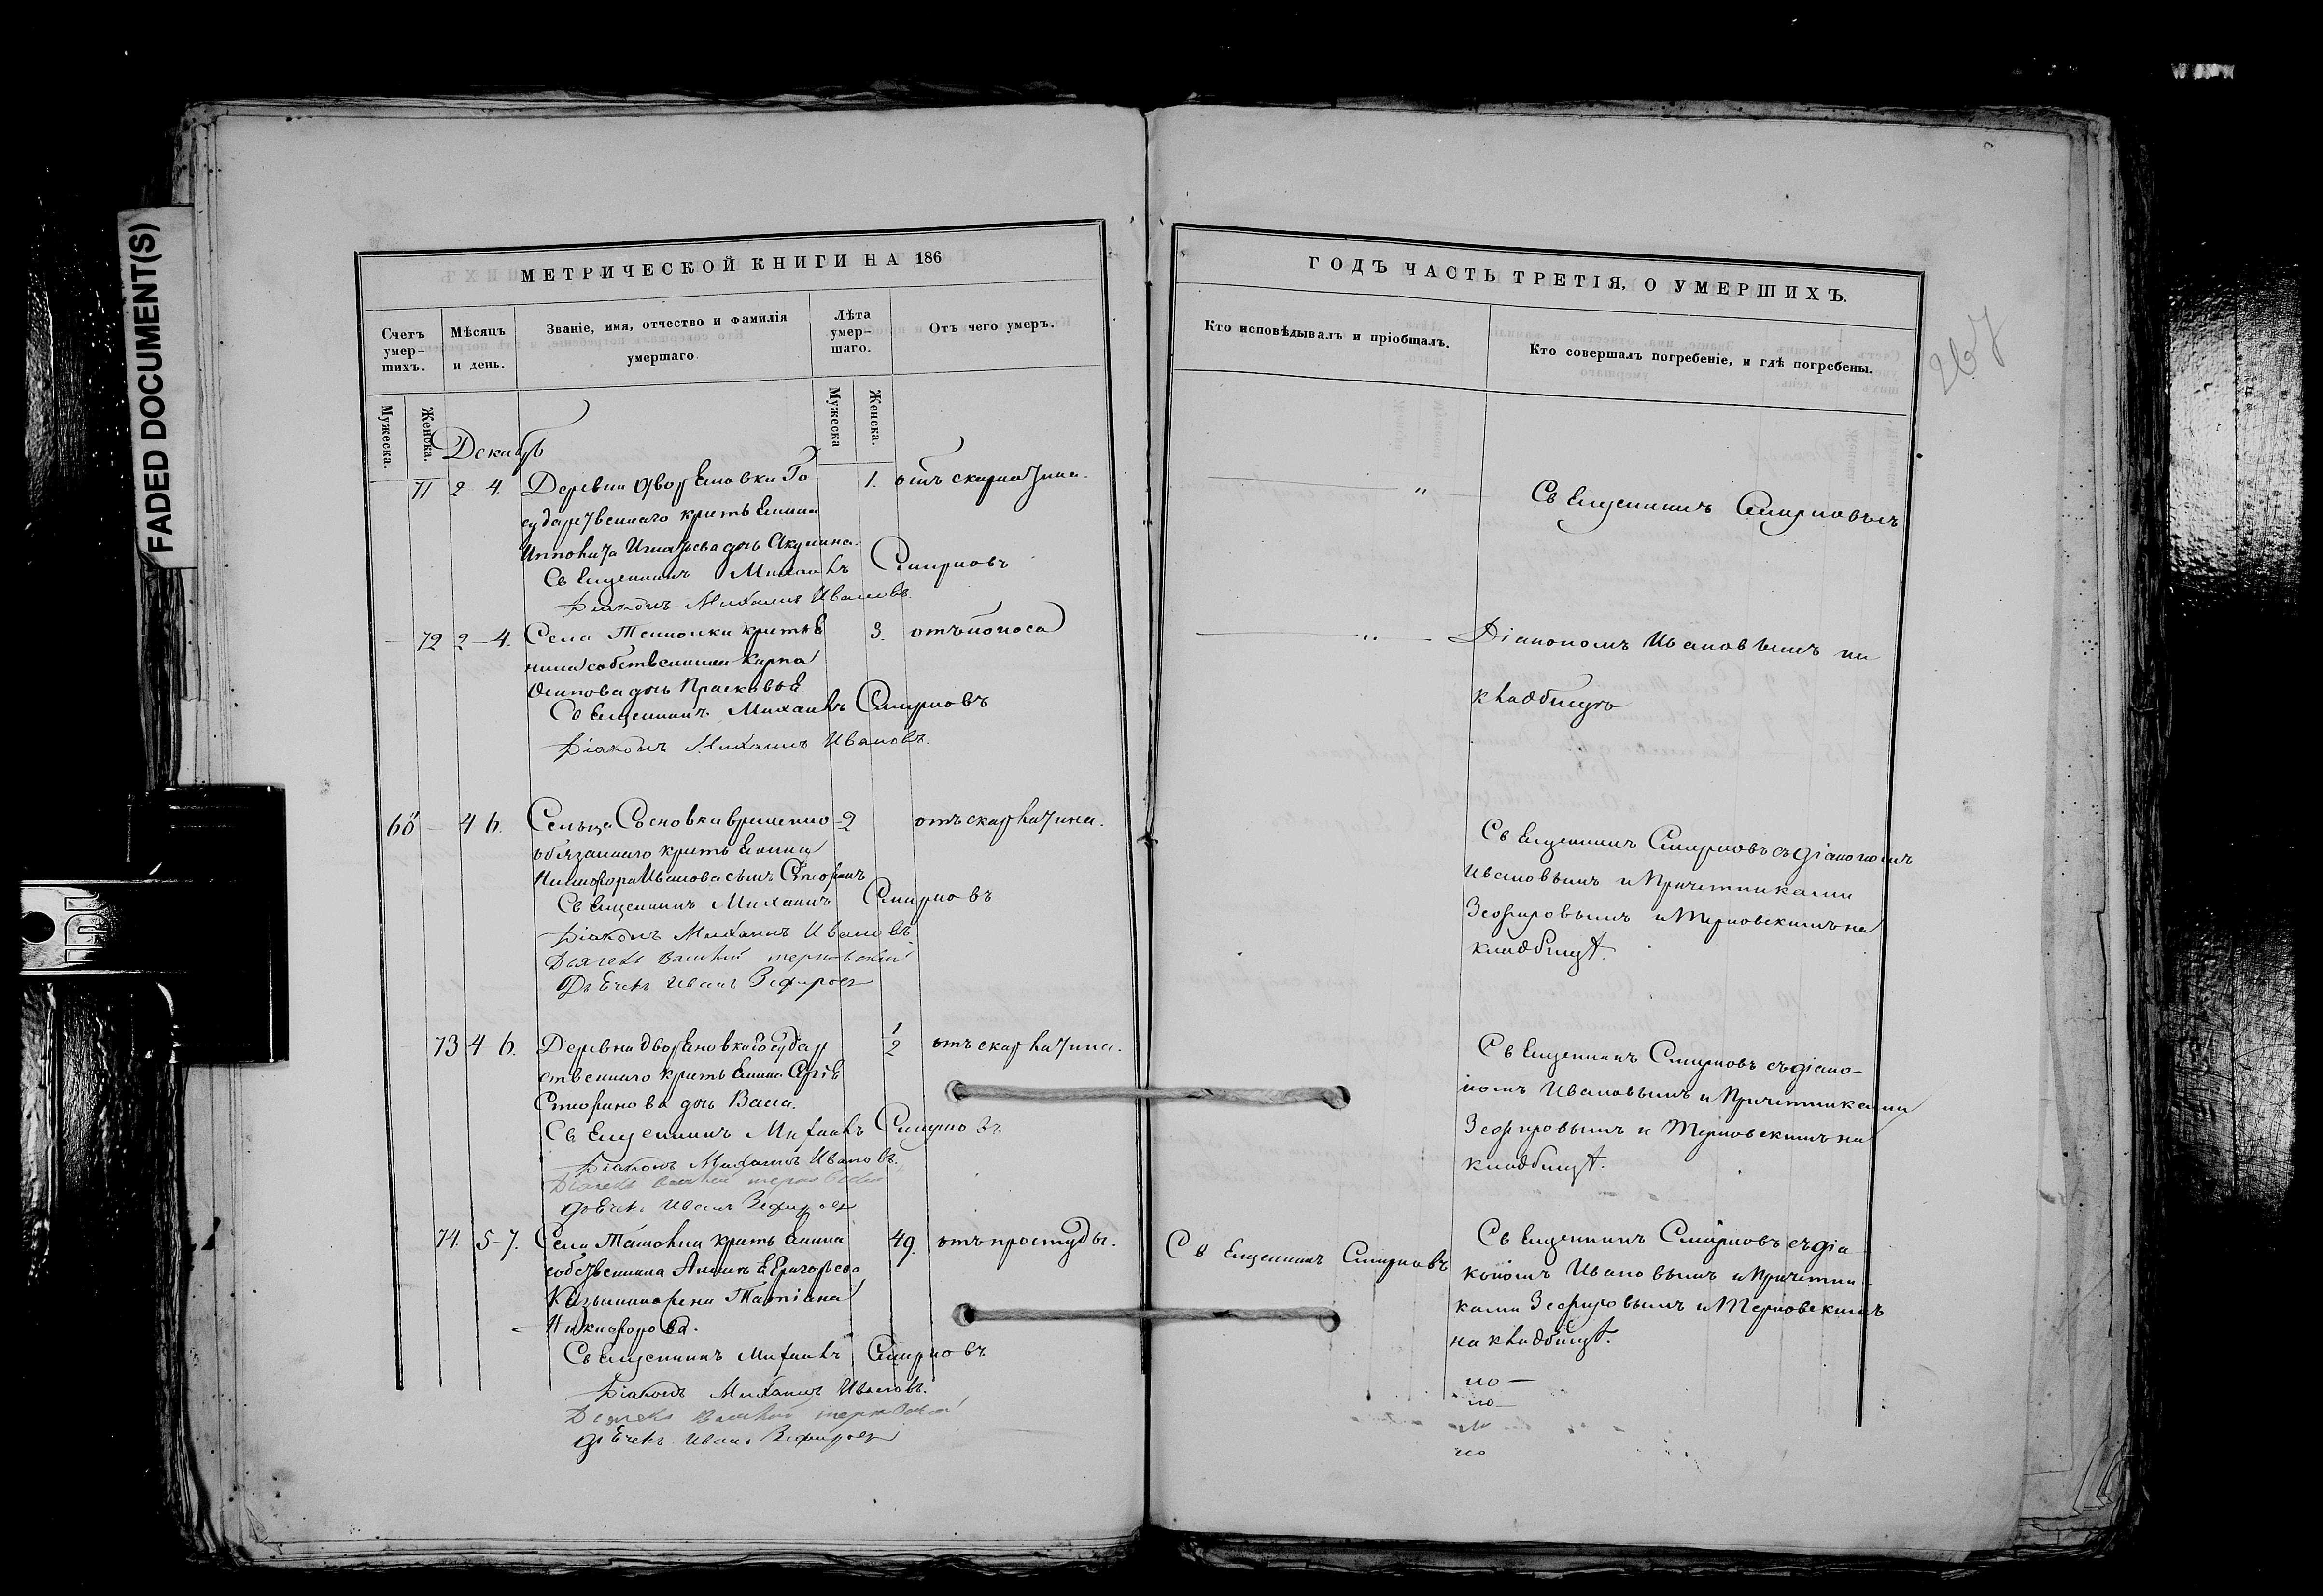 FADED DOCUMENT(S)
МЕТРИЧЕСКОЙ КНИГИ НА 186
Счетъ умер-шихъ.
Мѣсяцъ и день.
Званіе, имя, отчество и фамилія умершаго.
Лѣта умер-шаго.
Отъ чего умеръ.
Мужеска.
Женска.
Мужеска
Женска.
Декабрь
71 2-4. Деревни Дворяновки Го 1. отъ скарлатина.
сударственнаго крестьянина
Игнатьева дочь Акулина.
Священникъ Михаилъ Смирновъ
Діаконъ Михаилъ Ивановъ.
72 2-4. Села крестья 3. отъ поноса
нина собственника Карпа
Осипова дочь Прасковья.
Священникъ Михаилъ Смирновъ
Діаконъ Михаилъ Ивановъ.
68 4 6. Сельца Сосновки временно 2 отъ скарлатина.
обязаннаго крестьянина
Никифора Иванова сынъ Стефанъ
Священникъ Михаилъ Смирновъ
Діаконъ Михаилъ Ивановъ.
Дьячекъ Василій Терновскій
Дьячекъ Иванъ Зефировъ
73 4 6. Деревни Дворяновки Государ 1/2 отъ скарлатина.
ственнаго крестьянина
Стефанова дочь Васса.
Священникъ Михаилъ Смирновъ.
Діаконъ Михаилъ Ивановъ.
Дьячекъ Василій Терновскій
Дьячекъ Иванъ Зефировъ
74. 5-7. Села крестьянина 49. отъ простуды.
собственника Григорьева
жена Татіана
Никифорова.
Священникъ Михаилъ Смирновъ
Діаконъ Михаилъ Ивановъ.
Дьячекъ Василій Терновскій
Дьячекъ Иванъ Зефировъ
ГОДЪ ЧАСТЬ ТРЕТІЯ, О УМЕРШИХЪ.
267
Кто исповѣдывалъ и пріобщалъ.
Кто совершалъ погребеніе, и гдѣ погребены.
Священникъ Смирновъ
Діакономъ Ивановымъ на
кладбищѣ
Священникъ Смирновъ съ діакономъ
Ивановымъ и Причетниками
Зефировымъ и Терновскимъ на
кладбищѣ.
Священникъ Смирновъ съ діако-
номъ Ивановымъ и Причетниками
Зефировымъ и Терновскимъ на
кладбищѣ.
Священникъ Смирновъ
Священникъ Смирновъ съ діа-
кономъ Ивановымъ и Причетни-
ками Зефировымъ и Терновскимъ
на кладбищѣ.